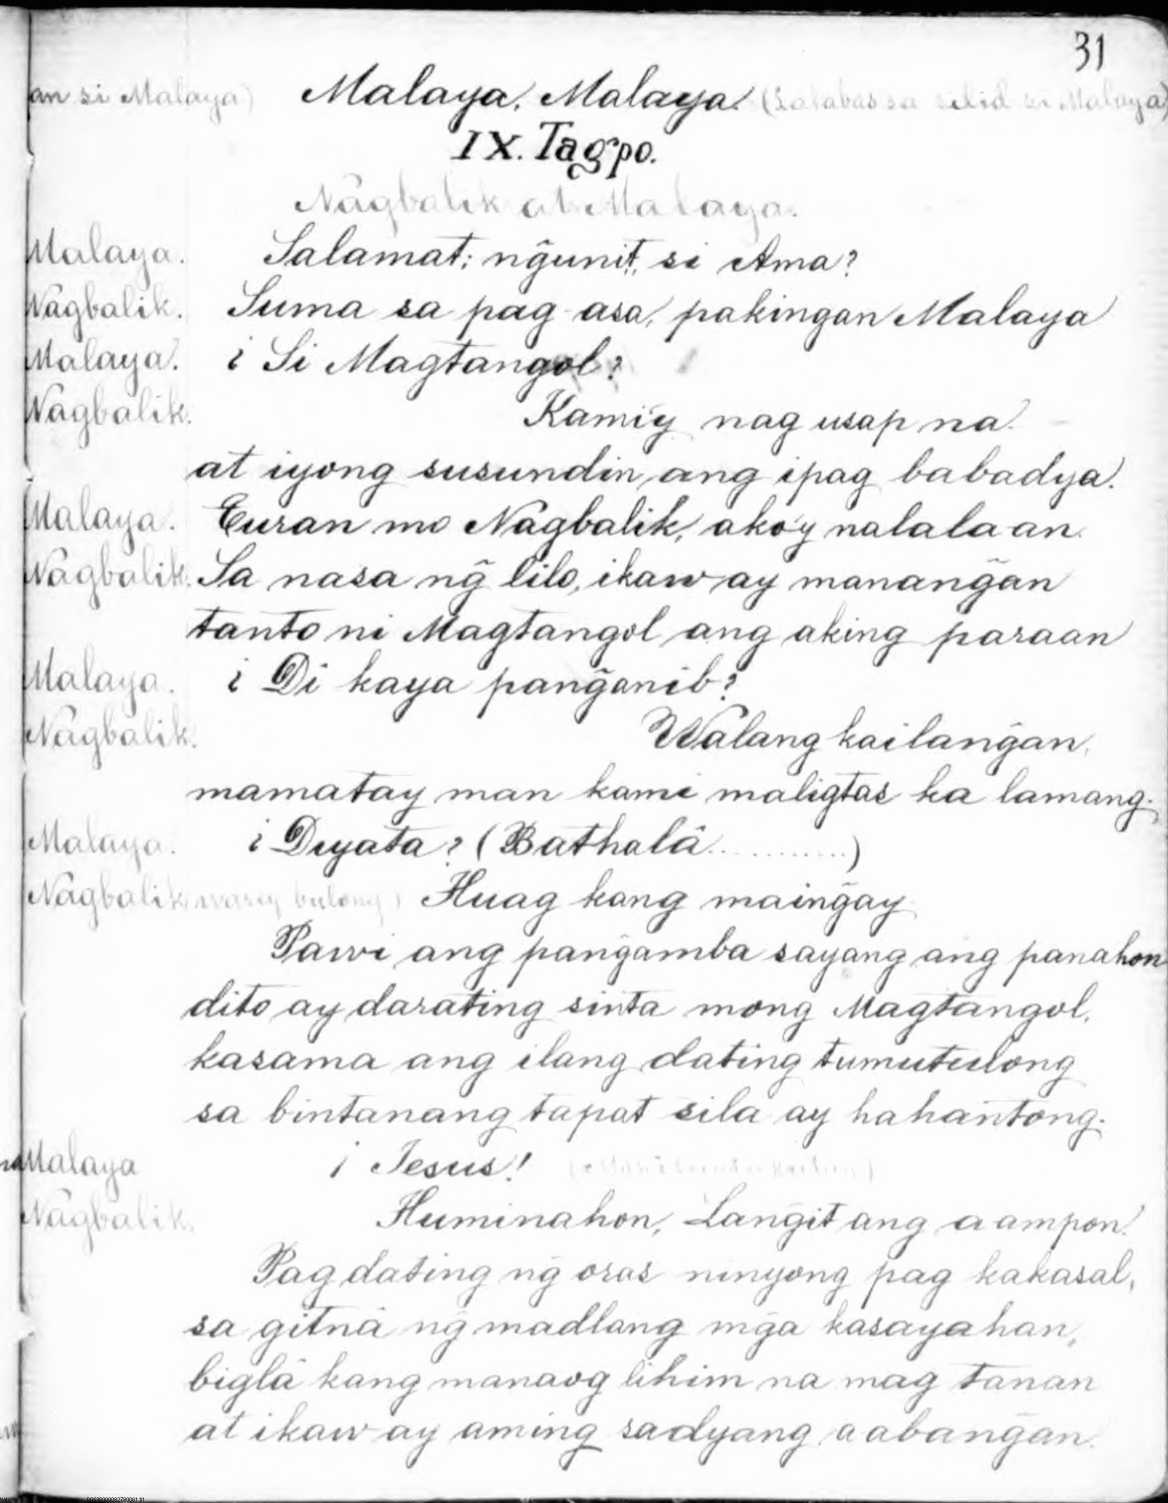 31
an si Malaya) Malaya, Malaya! (Lalabas sa silid si Malaya)
IX. Tagpo.
Nagbalik at Malaya.
Malaya. Salamat; ng̃unit, si Ama?
Nagbalik. Suma sa pag-asa, pakingan Malaya
Malaya. ¿Si Magtangol?
Nagbalik. Kami'y nag usap na
at iyong susundin, ang ipag babadya.
Malaya. Turan mo Nagbalik, ako'y nalala-an.
Nagbalik. Sa nasa ng̃ lilo, ikaw ay manang̃an
tanto ni Magtangol ang aking paraan
Malaya. ¿Di kaya pang̃anib?
Nagbalik. Walang kailang̃an,
mamatay man kami maligtas ka lamang.
Malaya. ¿Diyata? (Bathalâ...........)
Nagbalik bulong) Huag kang maing̃ay
Pawi ang pang̃amba sayang ang panahon
dito ay darating sinta mong Magtangol,
kasama ang ilang dating tumutulong
sa bintanang tapat sila ay hahantong.
Malaya ¡Jesus!
Nagbalik. Huminahon, Lang̃it ang aampon!
Pagdating ng̃ oras ninyong pag kakasal,
sa gitnâ ng̃ madlang mg̃a kasayahan,
biglâ kang manaog lihim na mag tanan
at ikaw ay aming sadyang aabang̃an.